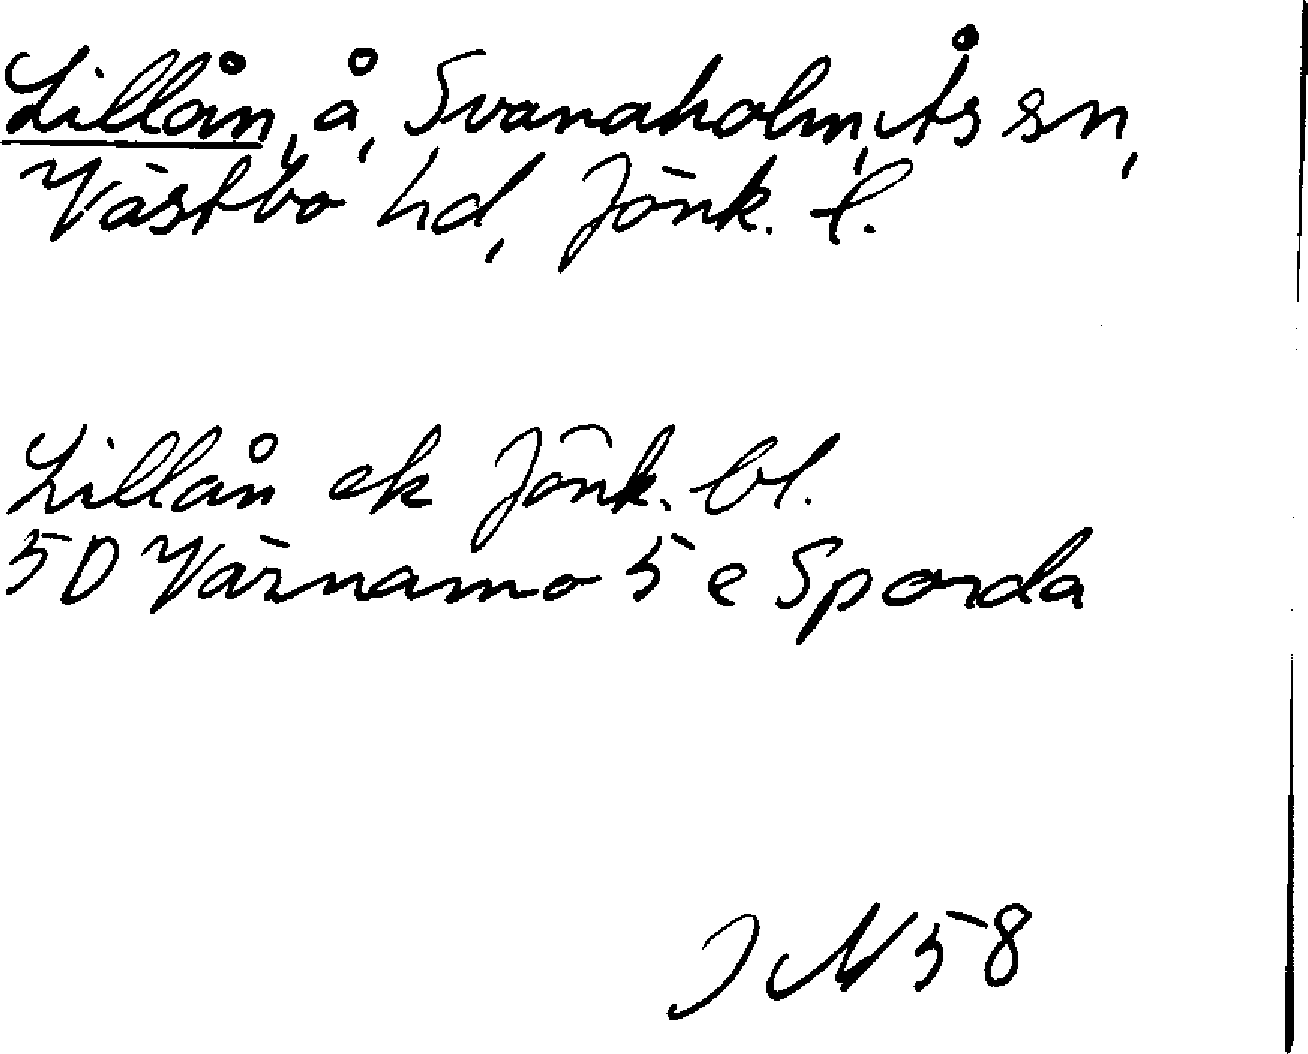 Lillån, å, Svanaholm, Ås sn,
Västbo hd, Jönk. l.
Lillån ek Jönk. bl.
5D Värnamo 5 e Sporda
JN58